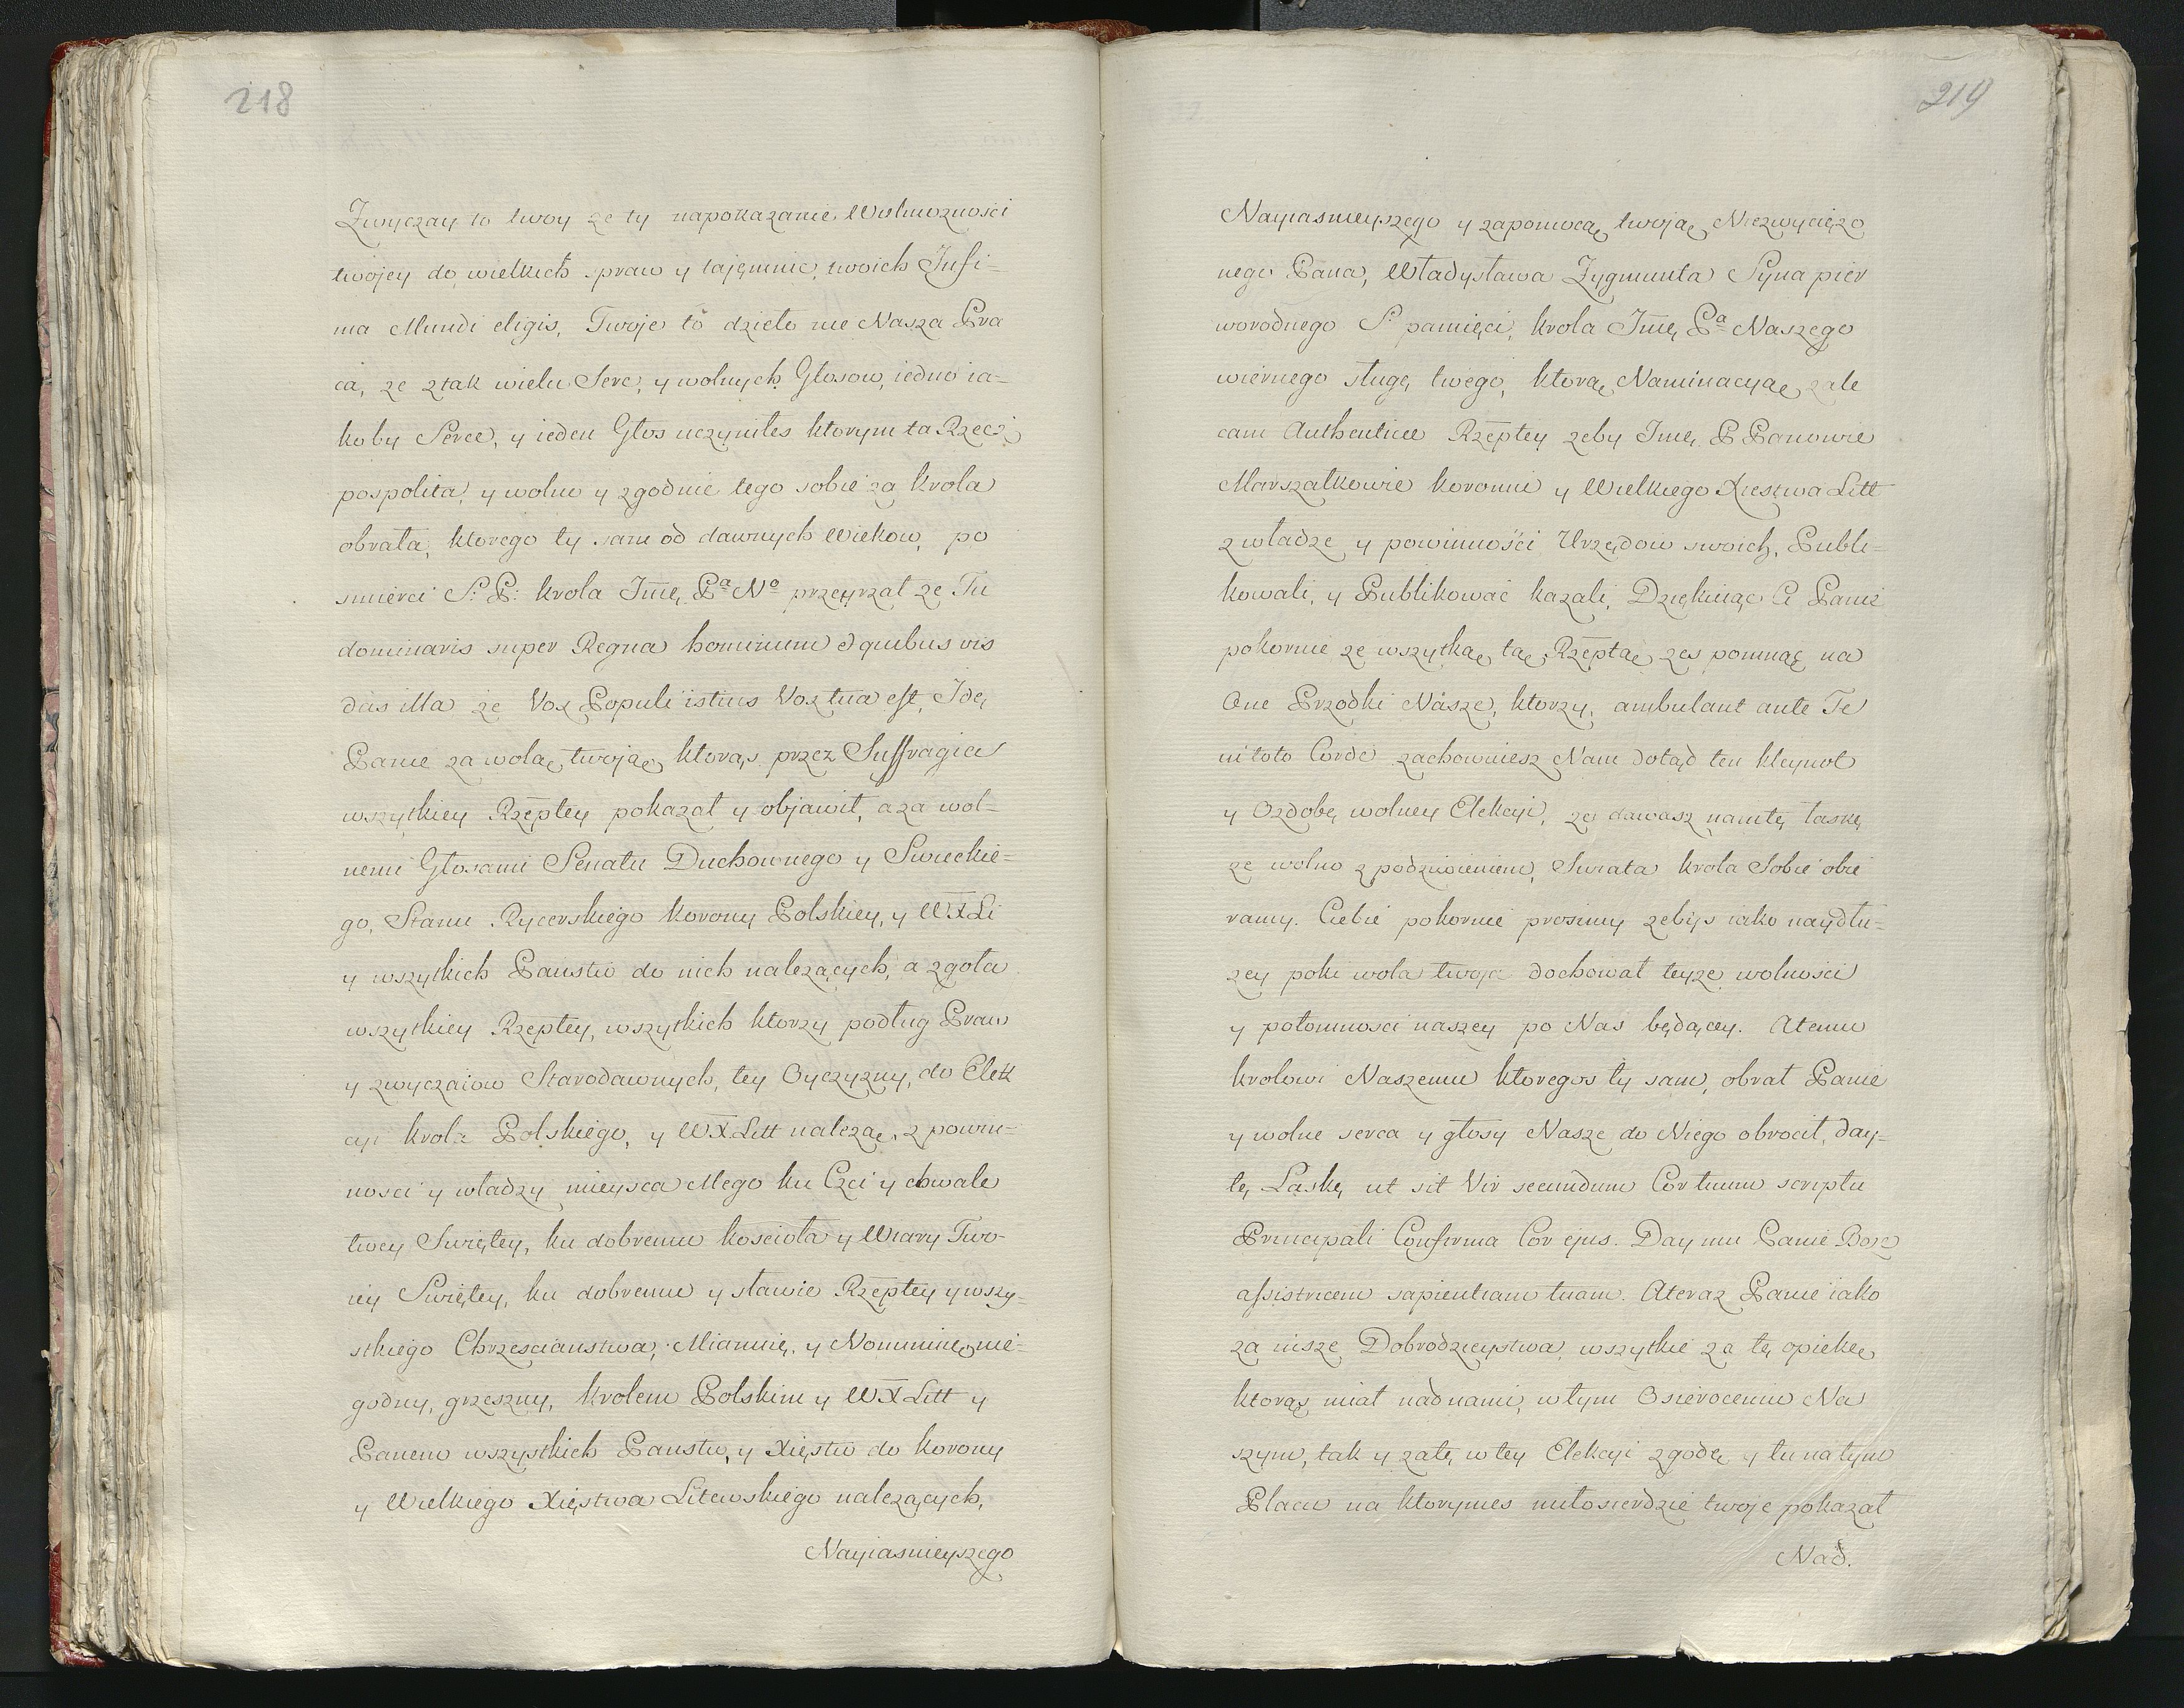 218
Zwyczay to twoy ze ty napokazanie Wielmoznosci
twojey do wielkich spraw y tajęmnic twoich Infi=
ma Mundi eligis, Twoje to dzieło nie Nasza Pra
ca, ze ztak wielu Serc, y wolnych Głosow, iedno ia=
koby Serce, y ieden Głos uczyniłes ktorym ta Rzecz
pospolita, y wolno y zgodnie tego sobie za krola
obrała, ktorego ty sam od dawnych Wiekow, po
smierci S: P: krola Jmę Pa No przeyrzał ze Tu
dominaris super Regna hominum & quibus vis
das illa ze Vox Populi istius Vox tua est, Idę
Panie za wolą twoją, ktorąs przez Suffragia
wszytkiey Rzeptey pokazał y objawił, a za wol=
nemi Głosami Senatu Duchownego y Swieckie=
go, Stanu Rycerskiego Korony Polskiey, y WXLi
y wszytkich Panstw do nich nalezących, a zgoła
wszytkiey Rzeptey, wszytkich ktorzy podług Praw
y zwyczaiow Starodawnych, tey Oyczyzny, do Elek
cyi krola Polskiego, y WXLitt nalezą, z powin=
nosci y władzy mieysca Mego ku Czci y chwale
twey Swiętey, ku dobremu koscioła y Wiary Two-
iey Swiętey, ku dobremu y sławie Rzeptey y wszy=
stkiego Chrzescianstwa, Mianuię, y Nominuię nie=
godny, grzeszny, krolem Polskim y WXLitt y
Panem wszystkich Panstw, y Xięstw do Korony
y Wielkiego Xięstwa Litewskiego nalezących,
Nayiasnieyszego
219
Nayiasnieyszego y zapomocą twoją Niezwycięzo
nego Pana, Władysława Zygmunta Syna pier
worodnego S. pamięci, krola Jmę Pa Naszego
wiernego sługę twego, ktorą Naminacyą zale
cam Authentice Rzeptey zeby Jmę P Panowie
Marszałkowie koronni y Wielkiego Xiestwa Litt
z władze y powinnosci Urzędow swoich, Publi=
kowali, y Publikować kazali, Dziękuiąc Ci Panie
pokornie ze wszytką tą Rzeptą zes pomnąc na
One Przodki Nasze, ktorzy, ambulant ante Te
in toto Corde zachowuiesz Nam dotąd ten kleynot
y Ozdobę wolney Elekcyi, ze dawasz nam tę łaskę
ze wolno z podziwieniem, Swiata krola Sobie obie
ramy. Ciebie pokornie prosimy zebys iako naydłu=
zey poki wola twoja dochował teyze wolnosci
y potomnosci naszey po Nas będącey. A temu
krolowi Naszemu ktoregos ty sam, obrał Panie
y wolne serca y głosy Nasze do Niego obrocił, day=
tę Łaskę ut sit Vir secundum Cor tuum scriptu
Principali Confirma Cor ejus. Day mu Panie Boze
assistricem sapientiam tuam. A teraz Panie iako
za insze Dobrodzieystwa, wszytkie za tę opiekę
ktorąs miał nad nami, w tym Osieroceniu Na
szym, tak y za tę w tey Elekcyi zgodę y tu na tym
Placu na ktorymes miłosierdzie twoje pokazał
Nad.